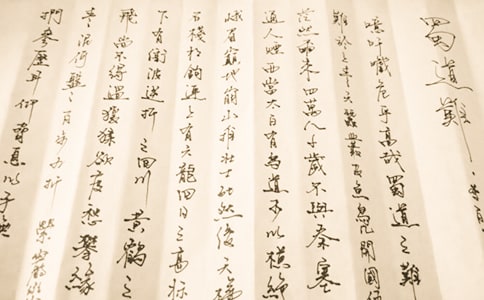 蜀道難 李白
噫吁嚱危乎高哉蜀道之難
難於上青天蠶叢及魚鳧開國
茫然爾來四萬八千歲不與秦塞
通人煙西當太白有鳥道可以橫絕
峨眉巔地崩山摧壯士死然後天梯
石棧相鉤連上有六龍回日之高標
下有衝波逆折之回川黃鶴之
飛尚不得過猿猱欲度愁攀緣
青泥何盤々百步九折縈巖巒
捫參歷井仰脅息以手撫